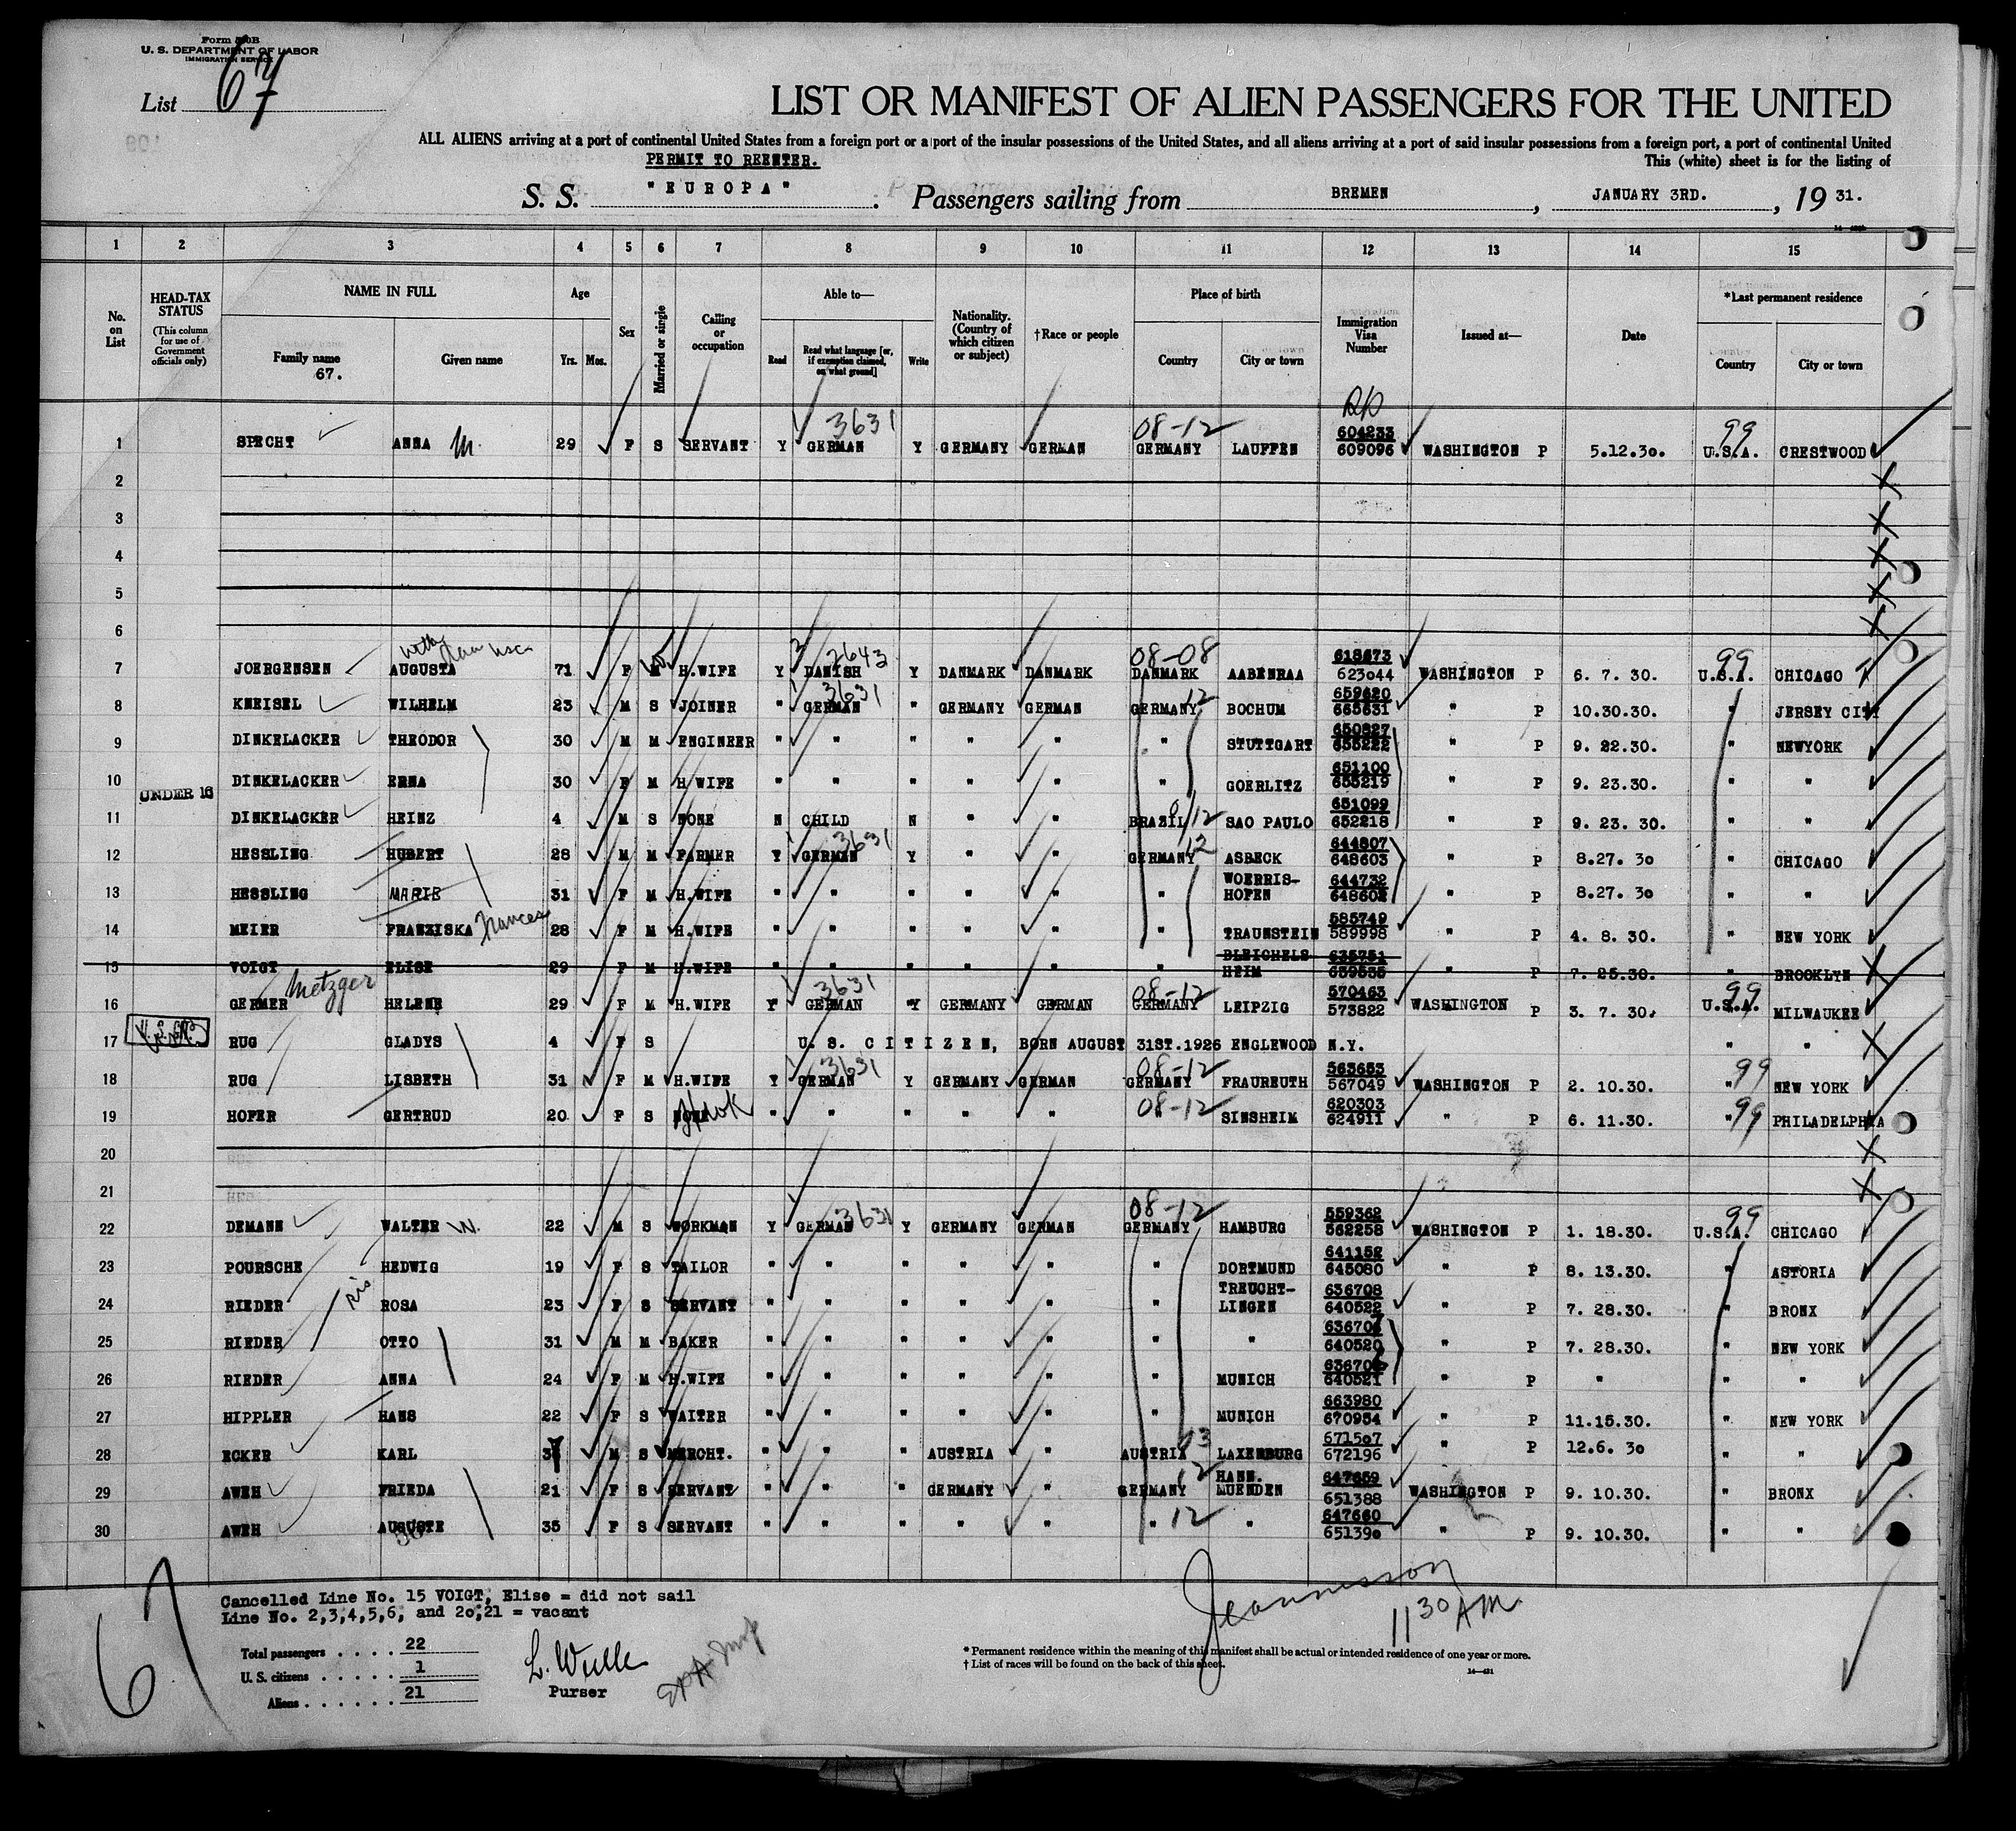 Form 500B
U. S. DEPARTMENT OF LABOR
IMMIGRATION SERVICE
List 67
LIST OR MANIFEST OF ALIEN PASSENGERS FOR THE UNITED
ALL ALIENS arriving at a port of continental United States from a foreign port or a port of the insular possessions of the United States, and all aliens arriving at a port of said insular possessions from a foreign port, a port of continental United
PERMIT TO REENTER.
This (white) sheet is for the listing of
S. S. "EUROPA" . Passengers sailing from BREMEN , JANUARY 3RD. , 19 31.
1 2 3 4 5 6 7 8 9 10 11 12 13 14 15
No. on List
HEAD-TAX STATUS (This column for use of Government officials only)
NAME IN FULL Family name 67. Given name
Age Yrs. Mos.
Sex
Married or single
Calling or occupation
Able to— Read Read what language [or, if exemption claimed, on what ground] Write
Nationality. (Country of which citizen or subject)
†Race or people
Place of birth Country City or town
Immigration Visa Number
Issued at—
Date
*Last permanent residence Country City or town
3631 08-12 99
1 SPECHT ANNA M. 29 F S SERVANT Y GERMAN Y GERMANY GERMAN GERMANY LAUFFEN 604233 609096 WASHINGTON P 5.12.30. U.S.A. CRESTWOOD
2
3
4
5
6
2643 08-08 99
7 JOERGENSEN AUGUSTA 71 F M H.WIFE Y DANISH Y DANMARK DANMARK DANMARK AABENRAA 618673 623044 WASHINGTON P 6. 7. 30. U.S.A. CHICAGO
8 KNEISEL WILHELM 23 M S JOINER " GERMAN 3631 " GERMANY GERMAN GERMANY 12 BOCHUM 659620 665631 " P 10.30.30. " JERSEY CITY
9 DINKELACKER THEODOR 30 M M ENGINEER " " " " " " STUTTGART 650827 655222 " P 9. 22.30. " NEWYORK
10 DINKELACKER ERNA 30 F M H WIFE " " " " " " GOERLITZ 651100 655219 " P 9. 23.30. " "
UNDER 16
11 DINKELACKER HEINZ 4 M S NONE N CHILD N " " BRAZIL SAO PAULO 651099 652218 " P 9. 23. 30. " "
12 HESSLING HUBERT 28 M M FARMER Y GERMAN 3631 Y " " GERMANY 12 ASBECK 644807 648603 " P 8.27. 30 " CHICAGO
13 HESSLING MARIE 31 F M H.WIFE " " " " " " WOERRIS-HOFEN 644732 648602 " P 8.27. 30 " "
14 MEIER FRANZISKA Frances 28 F M H.WIFE " " " " " " TRAUNSTEIN 585749 589998 " P 4. 8. 30. " NEW YORK
15 VOIGT ELISE 29 F M H.WIFE " " " " " " BLEICHELS-HEIM 635751 639535 " P 7. 25.30. " BROOKLYN
16 GERMER Metzger HELENE 29 F M H.WIFE Y GERMAN 3631 Y GERMANY GERMAN GERMANY 08-12 LEIPZIG 570463 573822 WASHINGTON P 3. 7. 30. U.S.A. 99 MILWAUKEE
17 RUG GLADYS 4 F S U. S. CITIZEN, BORN AUGUST 31ST.1926 ENGLEWOOD N.Y. " "
18 RUG LISBETH 31 F M H.WIFE Y GERMAN 3631 Y GERMANY GERMAN GERMANY 08-12 FRAUREUTH 563653 567049 WASHINGTON P 2. 10.30. " 99 NEW YORK
19 HOFER GERTRUD 20 F S " " " " " 08-12 SINSHEIM 620303 624911 " P 6. 11.30. " 99 PHILADELPHIA
20
21
22 DEMANN WALTER W. 22 M S WORKMAN Y GERMAN 3631 Y GERMANY GERMAN GERMANY 08-12 HAMBURG 559362 562258 WASHINGTON P 1. 18.30. U.S.A. 99 CHICAGO
23 POURSCHE HEDWIG 19 F S TAILOR " " " " " " DORTMUND 641152 645080 " P 8. 13.30. " ASTORIA
24 RIEDER ROSA 23 F S SERVANT " " " " " " TREUCHT-LINGEN 636708 640522 " P 7. 28.30. " BRONX
25 RIEDER OTTO 31 M M BAKER " " " " " " " 640520 " P 7. 28.30. " NEW YORK
26 RIEDER ANNA 24 F M H.WIFE " " " " " " MUNICH 640521 " P " " "
27 HIPPLER HANS 22 F S WAITER " " " " " " MUNICH 663980 670954 " P 11.15.30. " NEW YORK
28 ECKER KARL M S MERCHT. " " " AUSTRIA " AUSTRIA 13 LAXENBURG 671507 672196 " P 12.6. 30 " "
29 AWEH FRIEDA 21 F S SERVANT " " " GERMANY " GERMANY 12 HANN. MUENDEN 647659 651388 WASHINGTON P 9. 10.30. " BRONX
30 AWEH AUGUSTE 35 F S SERVANT " " " " " " 12 " 647660 651390 " P 9. 10.30. " "
Cancelled Line No. 15 VOIGT, Elise = did not sail
Line No. 2,3,4,5,6, and 20,21 = vacant
Total passengers . . . . 22
U. S. citizens . . . . . 1
Aliens . . . . . . 21
L. Wulle
Purser
67
11 30 AM
* Permanent residence within the meaning of this manifest shall be actual or intended residence of one year or more.
† List of races will be found on the back of this sheet.